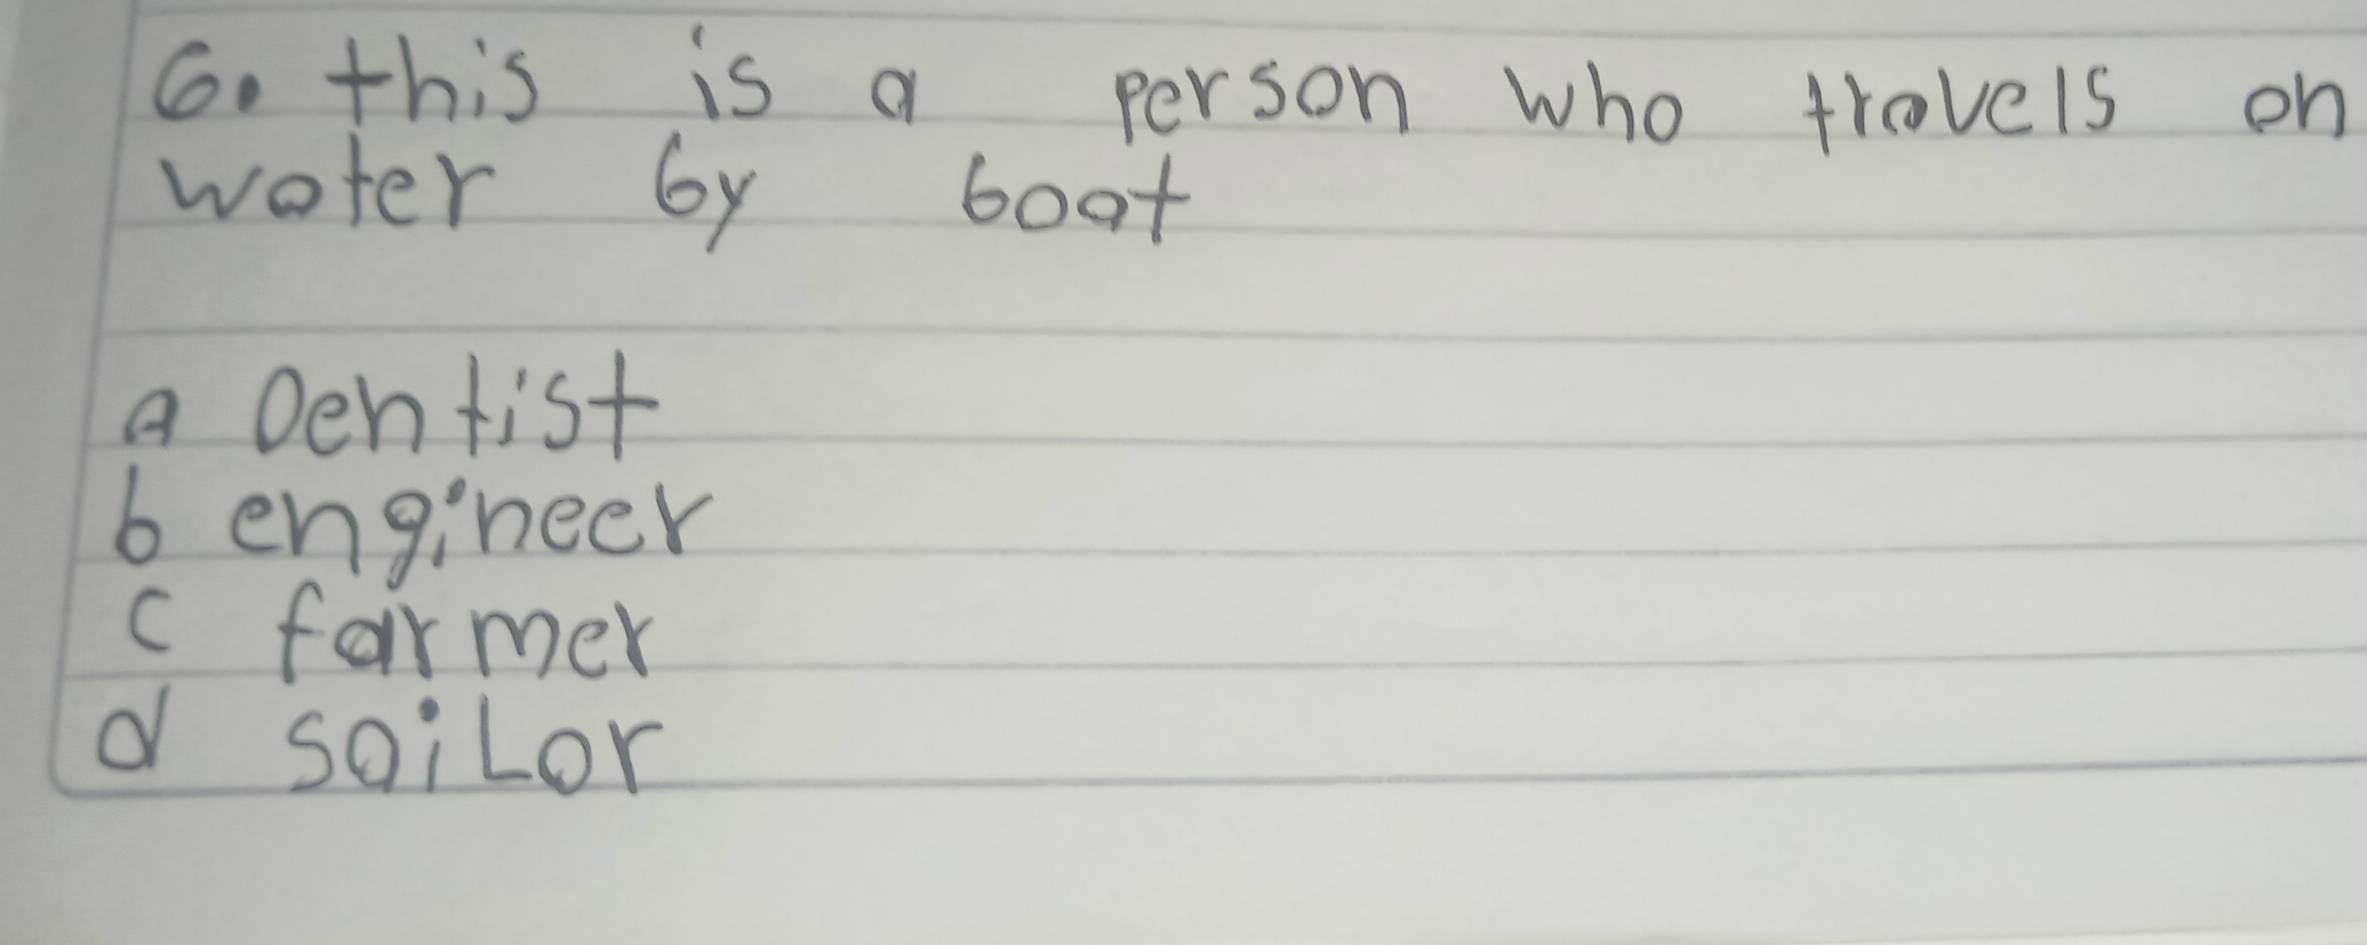 6. this is a person who travels on
water by boat
a Dentist
b engineer
c farmer
d saiLor